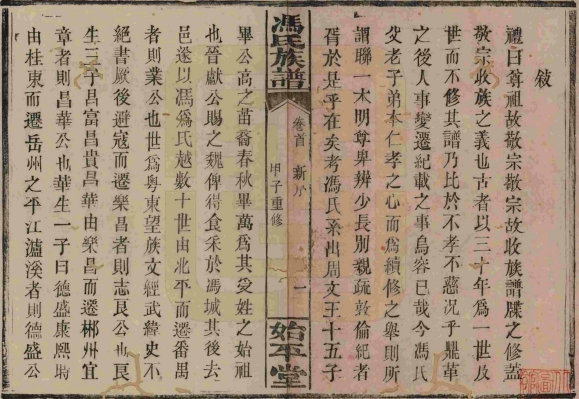 敘
禮曰尊祖故敬宗敬宗故收族譜牒之修蓋
敬宗收族之義也古者以三十年爲一世及
世而不修其譜乃比於不孝不慈況乎鼎革
之後人事變遷紀載之事烏容已哉今馮氏
父老子弟本仁孝之心而爲續修之舉則所
謂聯一本明尊卑辨少長別親疏敦倫紀者
胥於是乎在矣考馮氏系出周文王十五子
馮氏族譜
卷首 新序
甲子重修
一
始平堂
畢公高之苗裔春秋畢萬爲其受姓之始祖
也晉獻公賜之魏俾得食采於馮城其後去
邑遂以馮爲氏越數十世由北平而遷番禺
者則業公也世爲粵東望族文經武緯史不
絕書厥後避寇而遷樂昌者則志良公也良
生三子昌富昌貴昌華由樂昌而遷郴州宜
章者則昌華公也華生一子曰德盛康熙時
由桂東而遷岳州之平江瀘溪者則德盛公